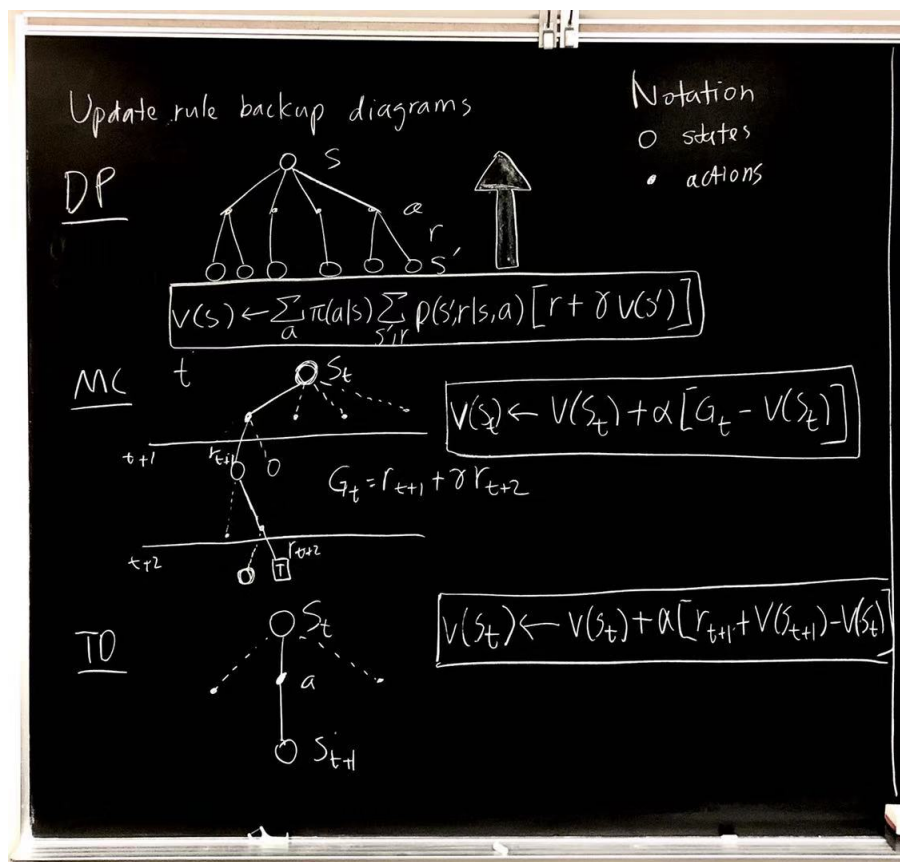 Update rule backup diagrams
Notation
○ states
• actions
DP
S
a
r
s'
V(s) ← ∑_a π(a|s) ∑_{s',r} p(s',r|s,a) [r + γ V(s')]
MC
t
S_t
V(S_t) ← V(S_t) + α [G_t - V(S_t)]
t+1
r_{t+1}
G_t = r_{t+1} + γ r_{t+2}
t+2
r_{t+2}
T
TD
S_t
V(S_t) ← V(S_t) + α [r_{t+1} + V(S_{t+1}) - V(S_t)]
a
S_{t+1}